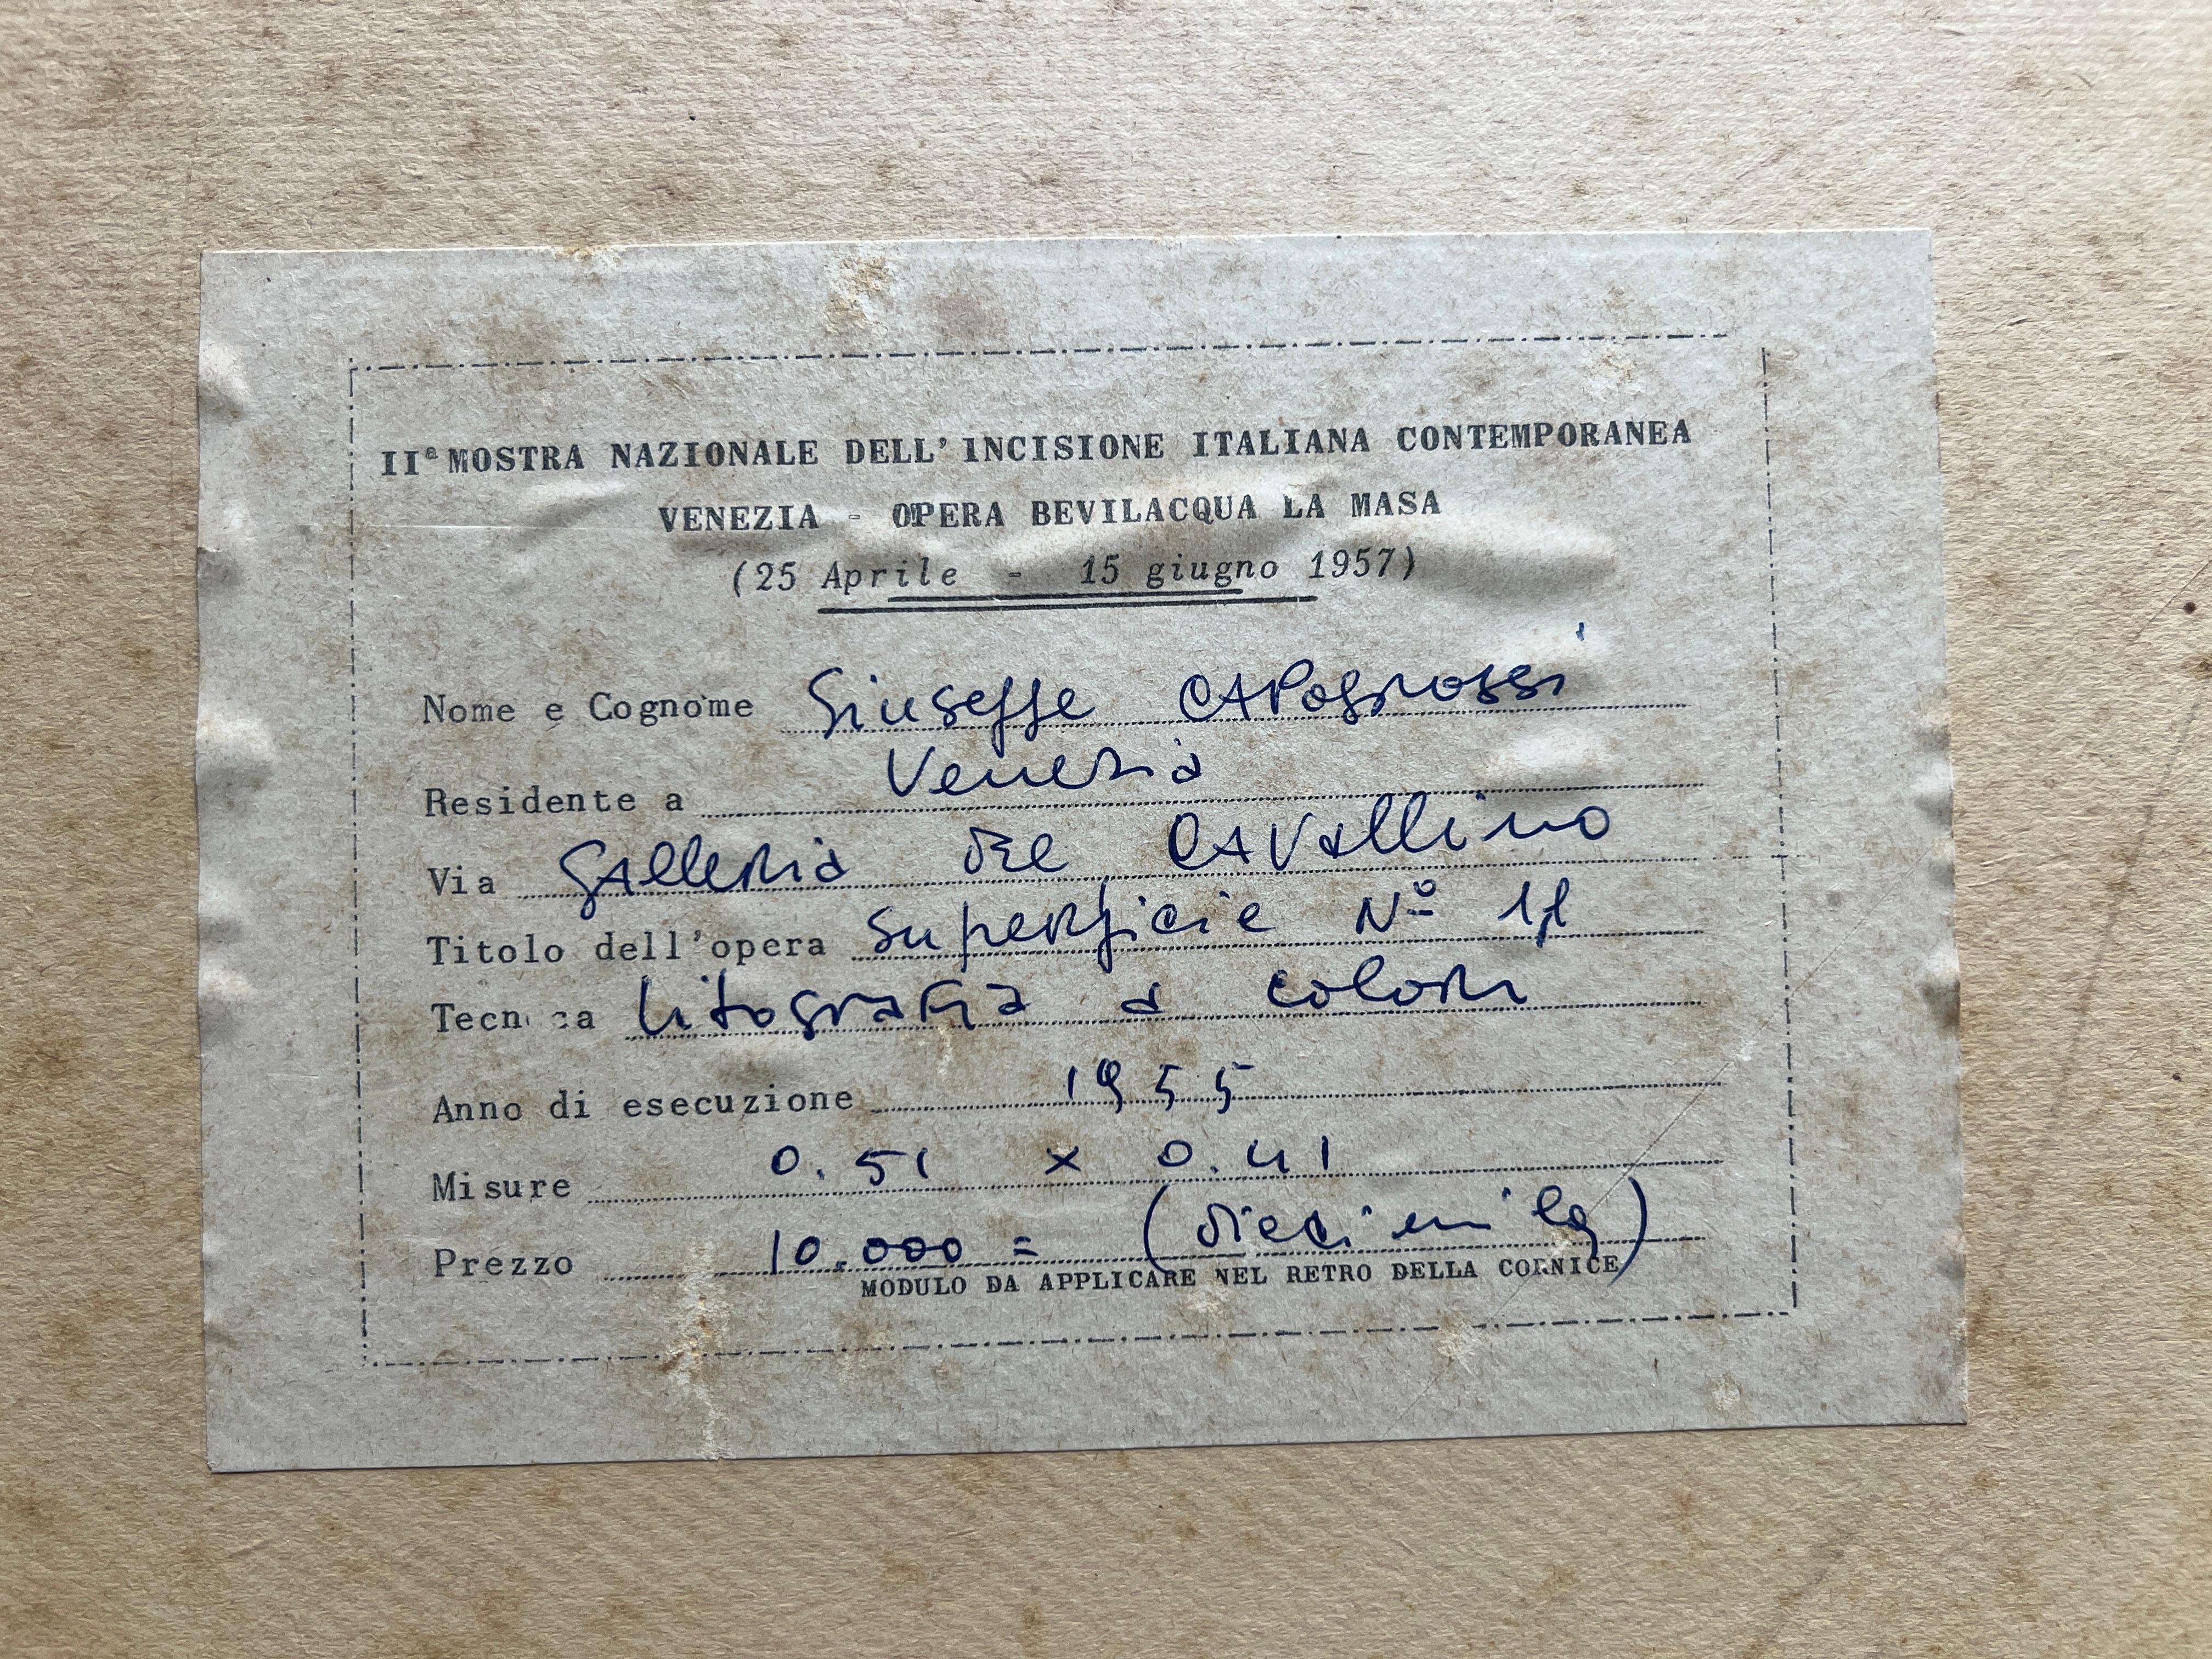 IIª MOSTRA NAZIONALE DELL'INCISIONE ITALIANA CONTEMPORANEA
VENEZIA - OPERA BEVILACQUA LA MASA
(25 Aprile - 15 giugno 1957)
Nome e Cognome Giuseppe CAPOGROSSI
Residente a Venezia
Via Galleria del CAVAllino
Titolo dell'opera Superficie Nº
Tecnica litografia a colori
Anno di esecuzione 1955
Misure 0.51 x 0.41
Prezzo 10.000 = (diecimila)
MODULO DA APPLICARE NEL RETRO DELLA CORNICE